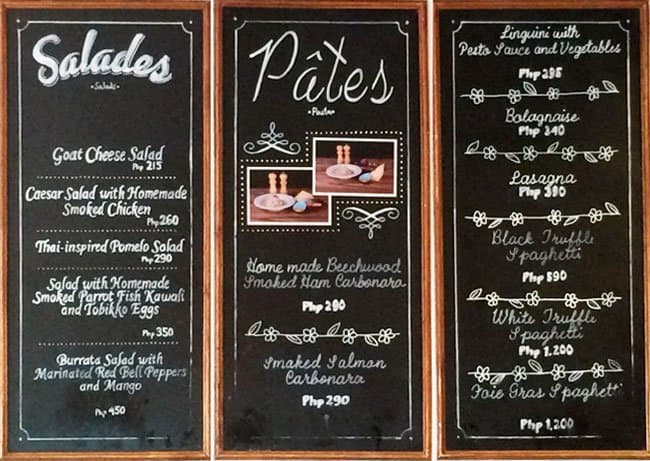 Salades
Salads
Goat Cheese Salad
Php 215
Caesar Salad with Homemade
Smoked Chicken
Php 260
Thai-inspired Pomelo Salad
Php 290
Salad with Homemade
Smoked Parrot Fish Kawali
and Tobikko Eggs
Php 350
Burrata Salad with
Marinated Red Bell Peppers
and Mango
Php 450
Pâtes
Pasta
Home made Beechwood
Smoked Ham Carbonara
Php 280
Smoked Salmon
Carbonara
Php 290
Linguini with
Pesto Sauce and Vegetables
Php 295
Bolagnaise
Php 340
Lasagna
Php 380
Black Truffle
Spaghetti
Php 590
White Truffle
Spaghetti
Php 1,200
Foie Gras Spaghetti
Php 1,200